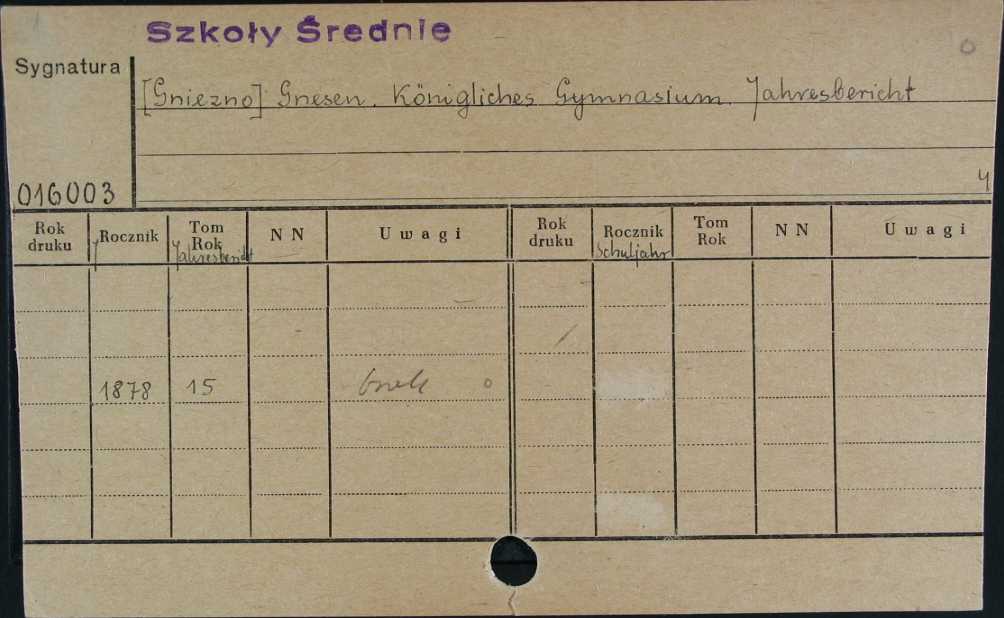 Szkoły Średnie
Sygnatura
[Gniezno] Gnesen. Königliches Gymnasium. Jahresbericht
016003
4
Rok druku Rocznik Tom Rok Jahresbericht N N Uwagi Rok druku Rocznik Schuljahr Tom Rok N N Uwagi
1878 15 brak